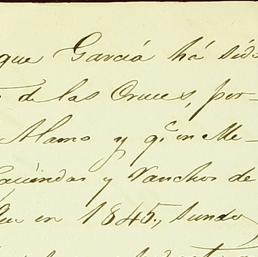 que García há sido
de las Cruces, por-
Alamo y qe. en Me-
Haciendas y Ranchos de
en 1845,, siendo